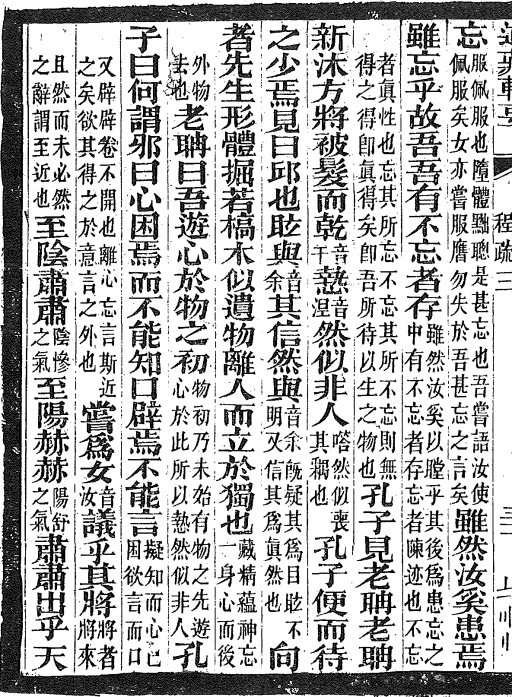 程疏三
忘服佩服也隳體黜聰是甚忘也吾嘗語汝使佩服矣女亦嘗服膺勿失於吾甚忘之言矣雖然汝奚患焉
雖忘乎故吾吾有不忘者存雖然汝奚以瞠乎其後爲患忘之中有不忘者存忘者陳迹也不忘
者眞性也忘其所忘不忘其所不忘則無得之得卽眞得矣卽吾所待以生之物也孔子見老聃老聃
新沐方將被髮而乾音干慹音涅然似非人嗒然似喪其耦也孔子便而待
之少焉見曰丘也眩與音余其信然與音余旣疑其爲目眩不明又信其爲眞然也向
者先生形體掘若槁木似遺物離人而立於獨也藏精蘊神忘一身心而後
外物去也老聃曰吾遊心於物之初物初乃未始有物之先遊心於此所以慹然似非人孔
子曰何謂邪曰心困焉而不能知口辟焉不能言擬知而心已困欲言而口
又辟辟卷不開也離心忘言斯近之矣欲其得之於意言之外也嘗爲女音汝議乎其將將者將來
且然而未必然之辭謂至近也至陰肅肅陰慘之氣至陽赫赫陽舒之氣肅肅出乎天